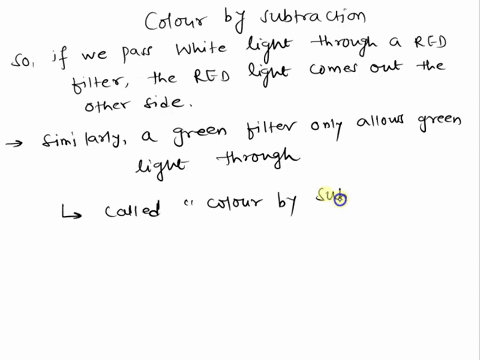 Colour by subtraction
So, if we pass White light through a RED
filter, the RED light comes out the
other side.
→ Similarly, a green filter only allows green
light through
↳ called " colour by sub